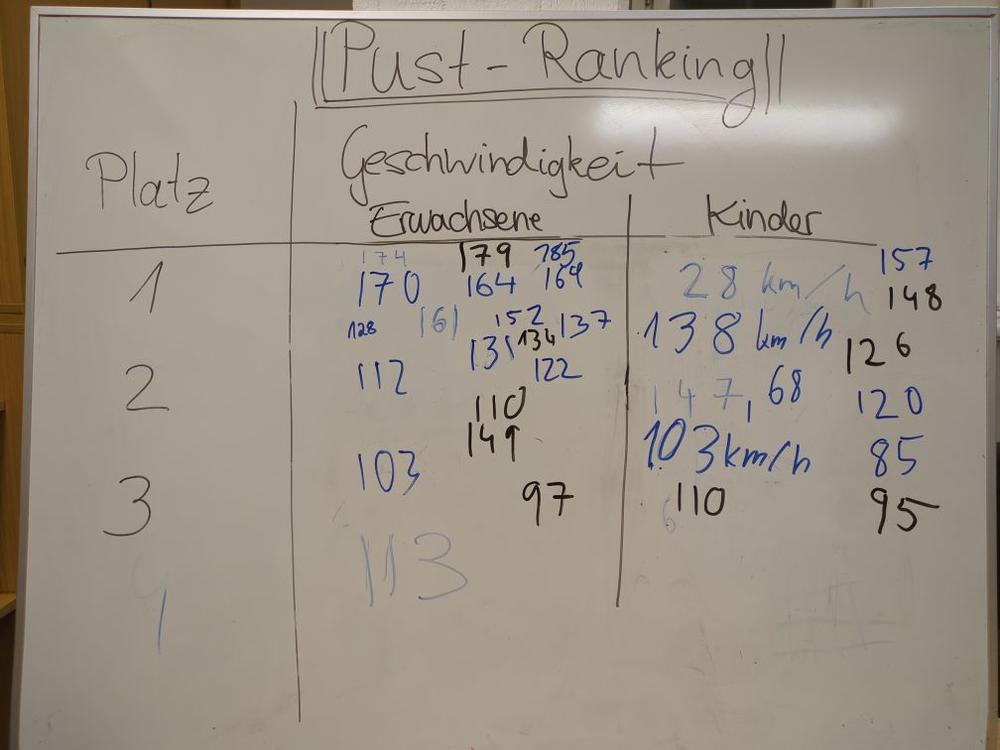 Pust-Ranking
Platz
Geschwindigkeit
Erwachsene
Kinder
1
174 179 185
170 164 164
128 161 152 137
131 134
2
112 122
110
149
103
3
97
113
28 km/h 157
148
138 km/h
126
147,68 120
103 km/h 85
110 95
6